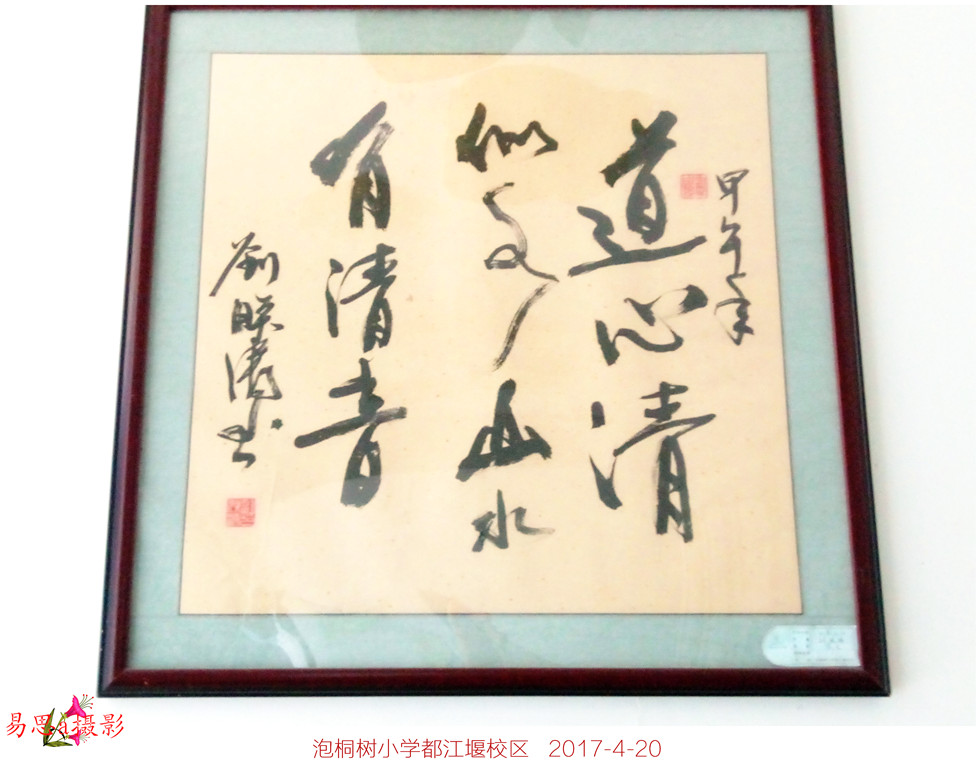 甲午年
道心清
似山水
有清音
刘映涛书
易思a摄影
泡桐树小学都江堰校区 2017-4-20